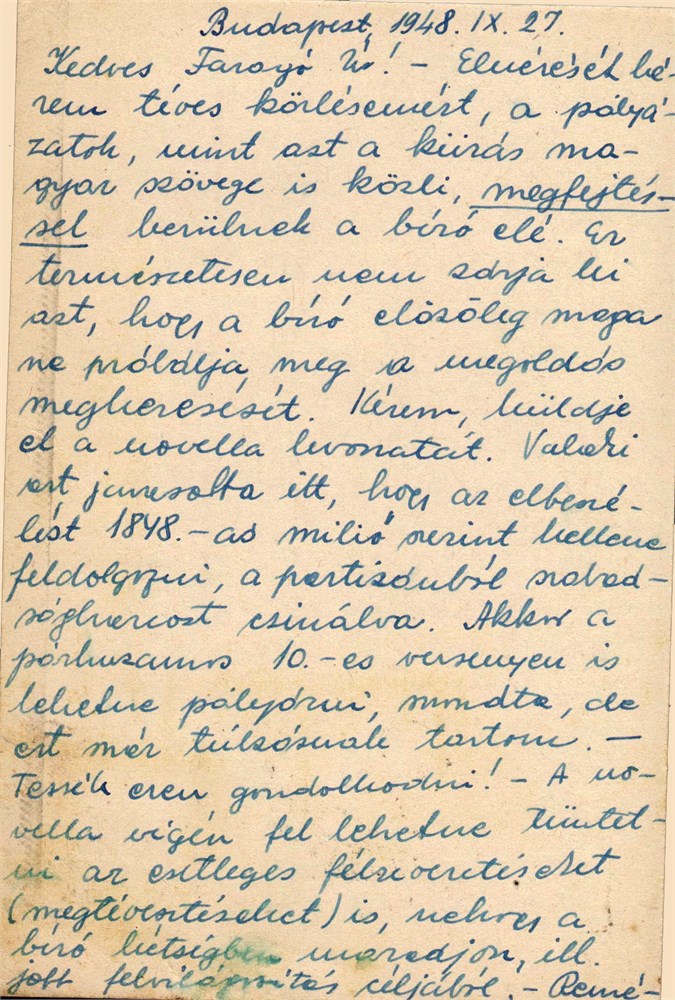 Budapest, 1948. IX. 27.
Kedves Faragó Úr! – Elnézését ké-
rem téves közlésemért, a pályá-
zatok, mint azt a kiírás ma-
gyar szövege is közli, megfejtés-
sel kerülnek a bíró elé. Ez
természetesen nem zárja ki
azt, hogy a bíró előzőleg maga
ne próbálja meg a megoldás
megkeresését. Kérem, küldje
el a novella kivonatát. Valaki
azt javasolta itt, hogy az elbeszé-
lést 1848.-as miliő szerint kellene
feldolgozni, a partizánból szabad-
ságharcost csinálva. Akkor a
párhuzamos 10.-es versenyen is
lehetne pályázni, mondta, de
ezt már túlzásnak tartom. –
Tessék ezen gondolkodni! – A no-
vella végén fel lehetne tüntet-
ni az esetleges félrevezetéseket
(megtévesztéseket) is, nehogy a
bíró kétségben maradjon, ill.
jobb felvilágosítás céljából. – Remé-